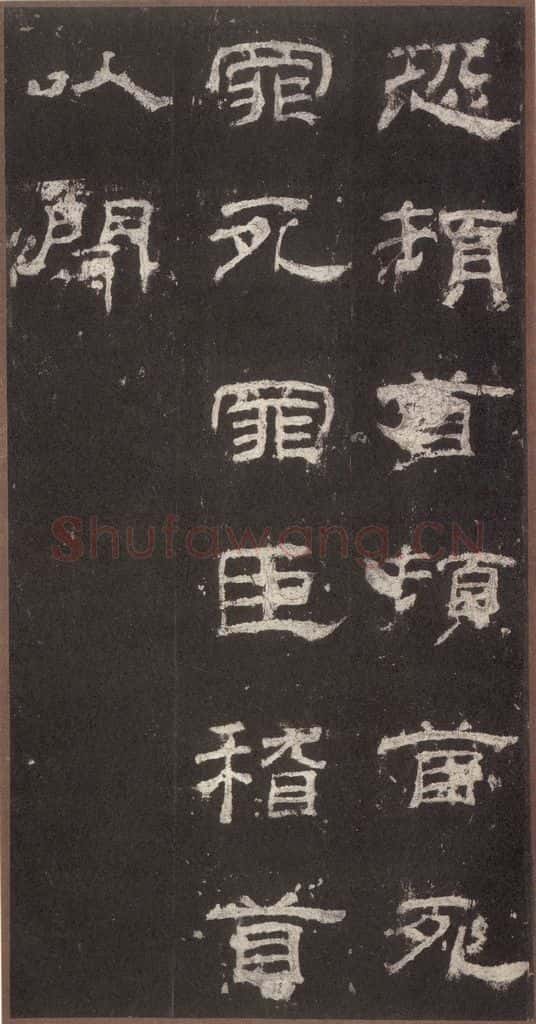 恐頓首頓首死
罪死罪臣稽首
以聞
Shufawang.CN